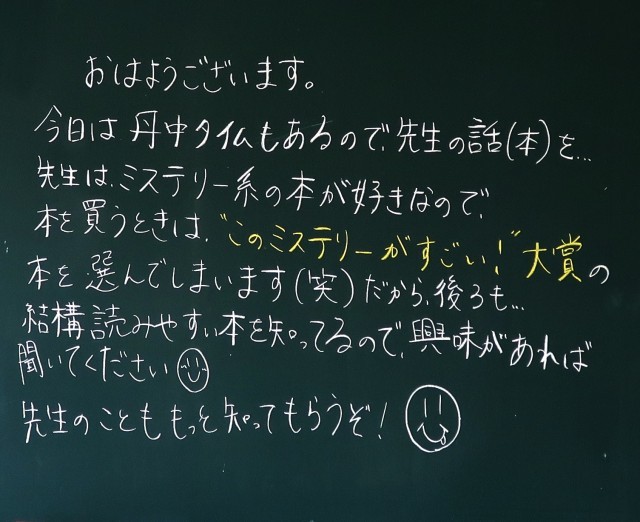 おはようございます。
今日は丹中タイムもあるので、先生の話(本)を…
先生は、ミステリー系の本が好きなので、
本を買うときは、"このミステリーがすごい!"大賞の
本を選んでしまいます(笑)だから、後ろも…
結構読みやすい本を知ってるので、興味があれば
聞いてください
先生のことももっと知ってもらうぞ!